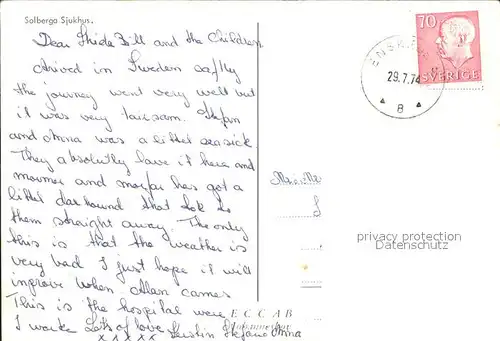 Salberga Sjukhus.
Dear Shiela Bill and the Children
arived in Sweden safley
the journey went very well but
it was very tairsam. Stefan
and Anna was a littel seasick.
They absolutly love it here and
mormor and morfar has got a
littel dashound that tok to
them straight away. The only
this is that the weather is
very bad I just hope it will
inprove when Allan cames
This is the hospital were
I worke Lots of love Kerstin Stefan o Anna
x x x x x
70
SVERIGE
ENSK
29.7.74
8
privacy protection
Datenschutz
ECCAB